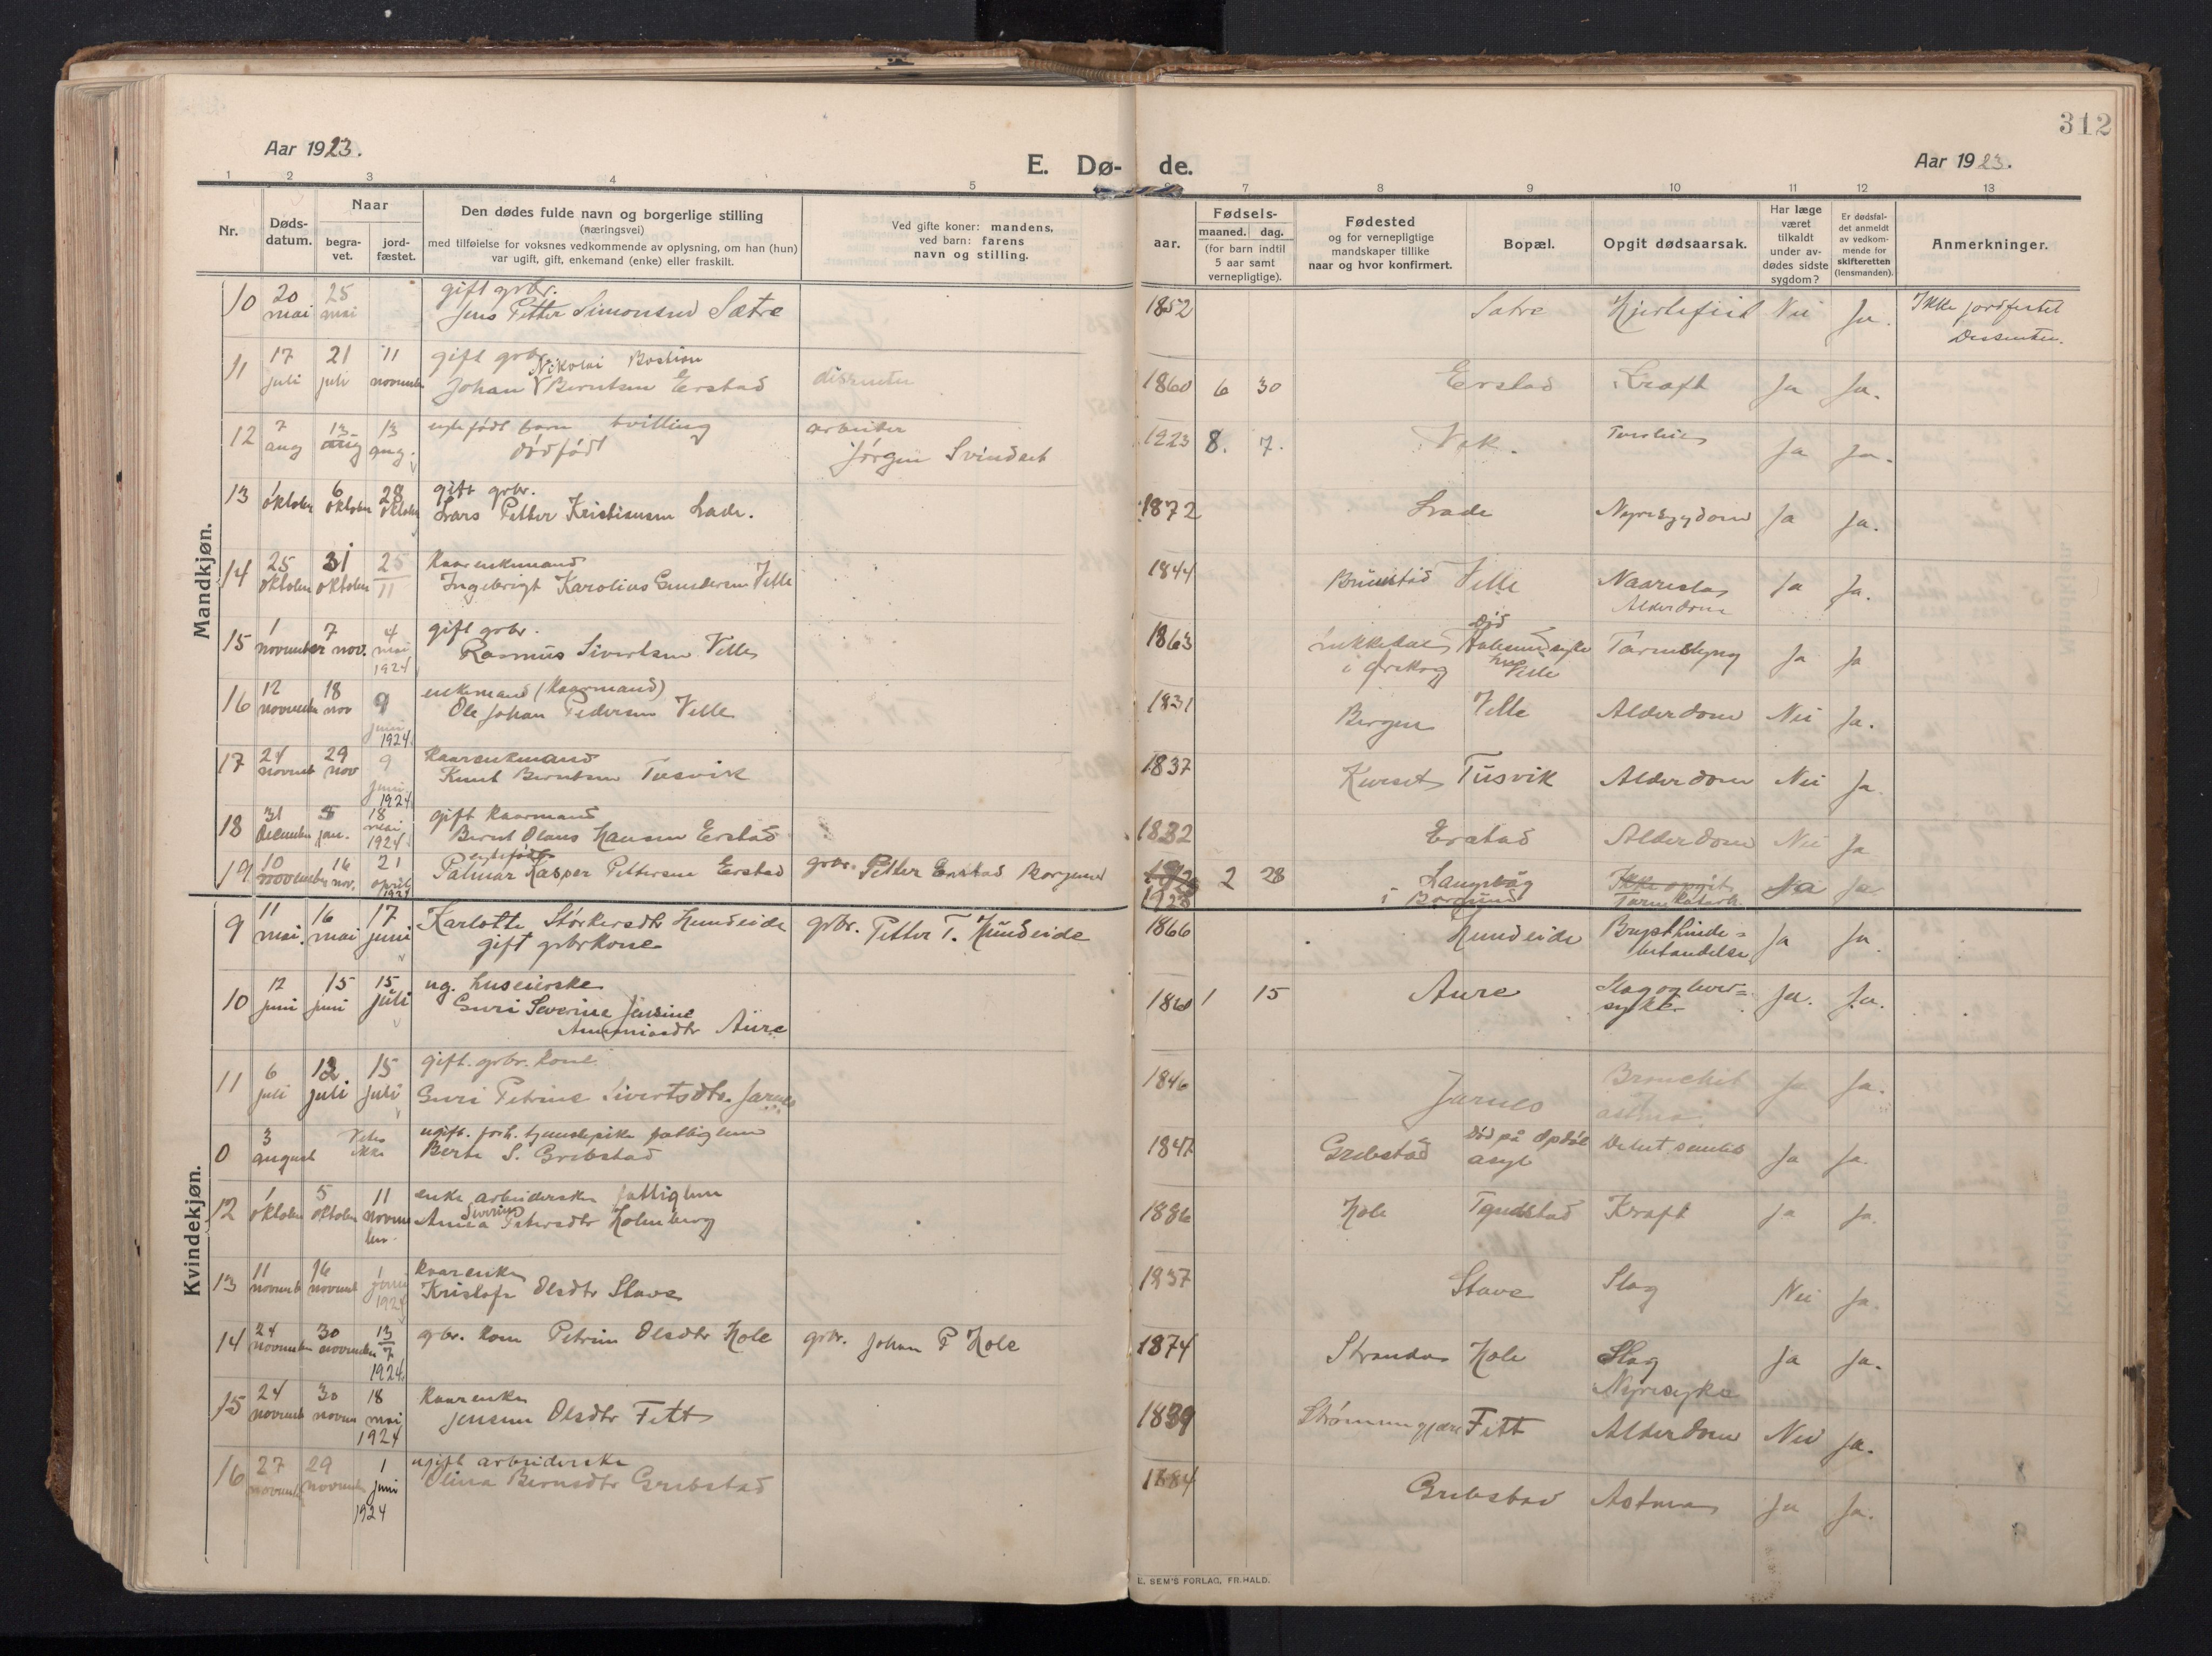 Aar 1923.
E. Dø- de.
Aar 1923.
312
1 2 3 4 5 7 8 9 10 11 12 13
Nr.
Døds-
datum.
Naar
begra-
vet.
jord-
fæstet.
Den dødes fulde navn og borgerlige stilling
(næringsvei)
med tilføielse for voksnes vedkommende av oplysning, om han (hun)
var ugift, gift, enkemand (enke) eller fraskilt.
Ved gifte koner: mandens,
ved barn: farens
navn og stilling.
aar.
Fødsels-
maaned. dag.
(for barn indtil
5 aar samt
vernepligtige).
Fødested
og for vernepligtige
mandskaper tillike
naar og hvor konfirmert.
Bopæl.
Opgit dødsaarsak.
Har læge
været
tilkaldt
under av-
dødes sidste
sygdom?
Er dødsfal-
det anmeldt
av vedkom-
mende for
skifteretten
(lensmanden).
Anmerkninger.
Mandkjøn.
10 20 mai 25 mai gift grbr. 1852 Sætre Hjertefeil Nei Ja. Ikke jordfestet
Jens Petter Simonsen Sætre Dissenter.
11 17 juli 21 juli 11 november gift grbr. Nikolai Bastian
Johan Berntsen Erstad dissenter 1860 6 30 Erstad Kraft Ja Ja.
12 7 aug 13 aug 13 aug. egtefødt barn tvilling arbeider 8. 7. Vik. Ja Ja.
dødfødt Jørgen Svindset
13 1 oktober 6 oktober 28 oktober gift grbr. 1872 Lade Nyresygdom Ja Ja.
Lars Petter Kristiansen Lade.
14 25 oktober 31 oktober 25 11 kaarenkemand 1844 Velle Ja Ja.
Ingebrigt Karolius Gundersen Velle Alderdom
15 1 november 7 nov. 4 mai 1924 gift grbr. 1863 Død
Rasmus Sivertsen Velle i Ørskog Aalesund syke hus Velle Tarmslyng Ja Ja
16 12 november 18 nov 9 juni 1924. enkemand (kaarmand) 1831
Ole Johan Pedersen Velle Bergen Velle Alderdom Nei Ja.
17 24 novemb 29 nov 9 juni 1924. kaarenkemand 1837
Knut Berntsen Tusvik Tusvik Alderdom Nei Ja.
18 31 december 5 jan. 18 mai 1924. gift kaarmand 1832 Erstad Alderdom Nei Ja
Bernt Olaus Hansen Erstad
19 10 november 16 nov. 21 april 1924 egtefødt
Palmar Kasper Pettersen Erstad grbr. Petter Erstad 1923 2 28 Langevåg i Borgund Ikke opgit Tarmkatarh. Ja
Kvindekjøn.
9 11 mai. 16 mai 17 juni Karlotte Størkersdtr Hundeide grbr. Petter T. Hundeide 1866 Hundeide Brysthinde=
gift grbrkone betændelse Ja Ja
10 12 juni 15 juni 15 juli ug. huseierske 1 15 Aure Slag og Ja. Ja.
Guri Severine Jensine sykke
Aure
11 6 juli 12 juli 15 juli gift. grbr. kone 1846 Bronchit Ja Ja.
Guri Petrine Sivertsdtr. Jarnes Jarnes astma
0 3 august Vites ikke ugift. forh. tjenestepike fattiglem 1847 Grebstad Død på Opdøl asyl Ja Ja.
Berte S. Grebstad
12 1 oktober 5 oktober 11 november enke arbeiderske fattiglem 1886 Hole Tyndstad Kraft Ja Ja.
Anna Petersdtr Holmberg
13 11 novemb 16 novemb 1 juni 1924 kaarenke 1837 Stave Slag Nei Ja.
Olsdtr Stave
14 24 november 30 november 13 7 1924. grbr. kone Petrine Olsdtr Hole grbr. Johan P Hole 1874 Stranda Hole Slag Ja Ja.
Nyresyke
15 24 novemb 30 novem 18 mai 1924 kaarenke 1839 Fitt Alderdom Nei Ja.
Jensine Olsdtr Fitt
16 27 novemb 29 novemb 1 juni 1924 ugift arbeiderske 1884 Grebstad Astma Ja Ja.
Olina Berntsdtr Grebstad
E. SEM'S FORLAG, FR.HALD.